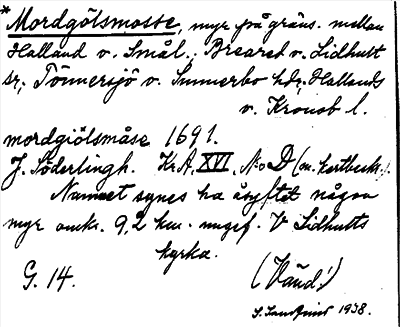 * Mordgölsmosse, myr på gräns. mellan
Halland o. Smål.; Breared o. Lidhult
sr; Tönnersjö o. Sunnerbo hdr; Hallands
o. Kronob l.
mordgiölsmåse 1691.
J. Söderlingh. Kr.A. XVI, No D (m. kartbeskr.).
Namnet synes ha åsyftat någon
myr omkr. 9,2 km. ungef. V Lidhults
kyrka.
G. 14.
1938.